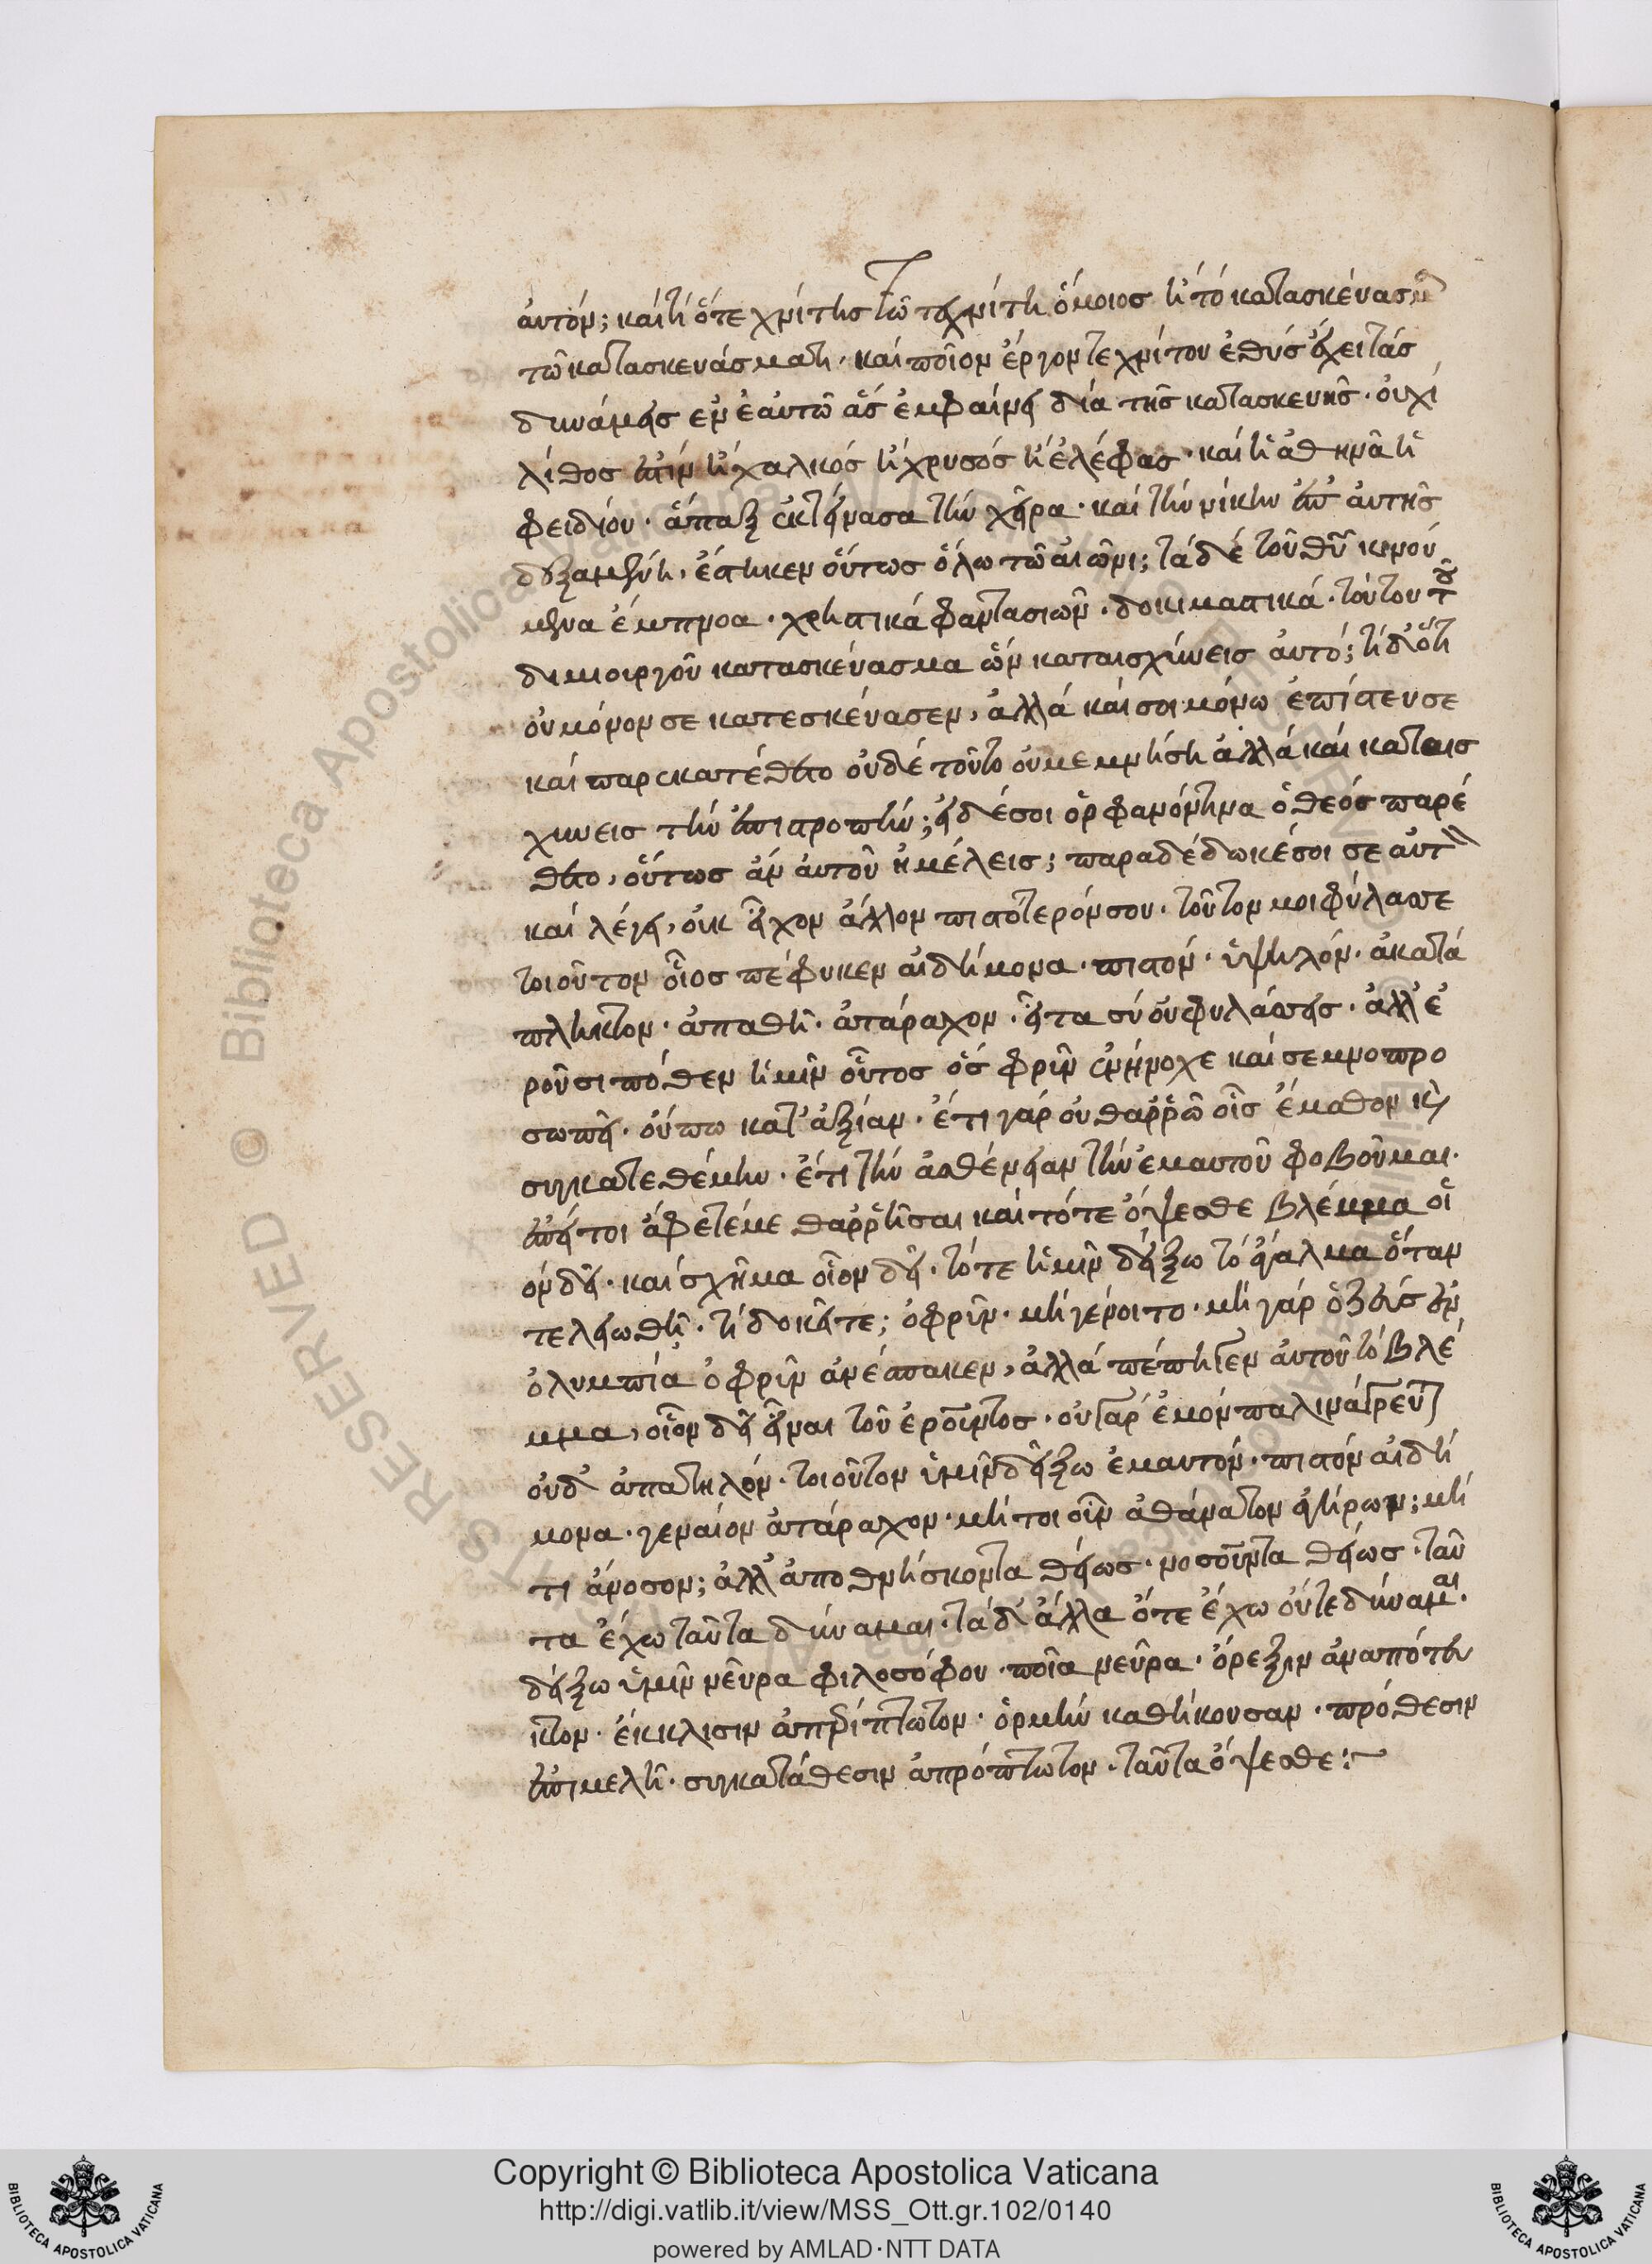 αὐτόν; καί τί ὅτε χνίτης τῶ τεχνίτη ὅμοιος ἢ τό κατασκέυασμα
τῶ κατασκευάσματι, καί ποῖον ἔργον τεχνίτου ἐυθύς ἔχει τάς
δυνάμεις ἐν ἑαυτῶ ἅς ἐμφαίνει διά τῆς κατασκευῆς· ὀυχί
λίθος ἐστίν ἢ χαλκός ἢ χρυσός ἢ ἐλέφας· καί ἡ ἀθηνᾶ ἡ
φειδίου· ἅπαξ ἐκτείνασα τήν χεῖρα· καί τήν νίκην ἐπ' ἀυτῆς
δεξαμένη, ἕστηκεν ὅυτως ὅλω τῶ ἀιῶνι; τά δέ τοῦ θῦ κινού
μενα ἔμπνοα· χρηστικά φαντασιῶν· δοκιμαστικά· τούτου τοῦ
δημιουργοῦ κατασκέυασμα ὤν καταισχύνεις ἀυτό; τί δ' ὅτι
ὀυ μόνον σε κατεσκέυασεν, ἀλλά καί σοι μόνω ἐπίστευσε
καί παρεκατέθετο ὀυδέ τοῦτο ὀυ μεμνήση ἀλλά καί καταισ
χύνεις τήν ἐπιτροπήν; εἰ δέ σοι ὀρφανόν τινα ὁ θεός παρέ
θετο, ὅυτως ἄν ἀυτοῦ ἠμέλεις; παραδέδωκέ σοι σε ἀυτὸν
καί λέγει, ὀυκ εἶχον ἄλλον πιστότερόν σου· τοῦτον μοι φύλαττε
τοιοῦτον οἷος πέφυκεν ἀιδήμονα· πιστόν· ὑψηλόν· ἀκατά
πληκτον· ἀπαθῆ· ἀτάραχον· εἶτα σύ ὀυ φυλάσσεις· ἀλλ' ἐ
ροῦσι πόθεν ἡμῖν οὗτος ὀφρῦν ἐνήνοχε καί σεμνοπρο
σωπεῖ· ὄυπω κατ' ἀξίαν· ἔτι γάρ ὀυ θαῤῥῶ οἷς ἔμαθον κὶ
συγκατεθέμην· ἔτι τήν ἀσθένειαν τήν ἐμαυτοῦ φοβοῦμαι·
ἐπεί τοι ἄφετέ με θαῤῥῆσαι καί τότε ὄψεσθε βλέμμα οἷ
ον δεῖ· καί σχῆμα οἷον δεῖ· τότε ὑμῖν δείξω τό ἄγαλμα ὅταν
τελειωθῆ· τί δοκεῖτε; ὀφρῦν· μή γένοιτο· μή γάρ ὁ ζεύς ὁ ἐν
ὀλυμπία ὀφρῦν ἀνέσπακεν, ἀλλά πέπηγεν ἀυτοῦ τό βλέ
μμα, οἷον δεῖ εἶναι τοῦ ἐροῦντος· ὀυ γάρ ἐμόν παλινάγρετον
ὀυδ' ἀπατηλόν· τοιοῦτον ὑμῖν δείξω ἐμαυτόν· πιστόν ἀιδή
μονα· γεναῖον ἀτάραχον· μή τι οὖν ἀθάνατον ἀγήρων; μή
τι ἄνοσον; ἀλλ' ἀποθνήσκοντα θείως· νοσοῦντα θείως· ταῦ
τα ἔχω ταῦτα δύναμαι· τά δ' ἄλλα ὄτε ἔχω ὄυτε δύναμαι·
δείξω ὑμῖν νεῦρα φιλοσόφου· ποῖα νεῦρα· ὄρεξιν ἀναπότευ
κτον· ἔκκλισιν ἀπερίπτωτον· ὁρμήν καθήκουσαν· πρόθεσιν
ἐπιμελῆ· συγκατάθεσιν ἀπρόπτωτον· ταῦτα ὄψεσθε:
Copyright © Biblioteca Apostolica Vaticana
http://digi.vatlib.it/view/MSS_Ott.gr.102/0140
powered by AMLAD·NTT DATA
BIBLIOTECA APOSTOLICA VATICANA
BIBLIOTECA APOSTOLICA VATICANA